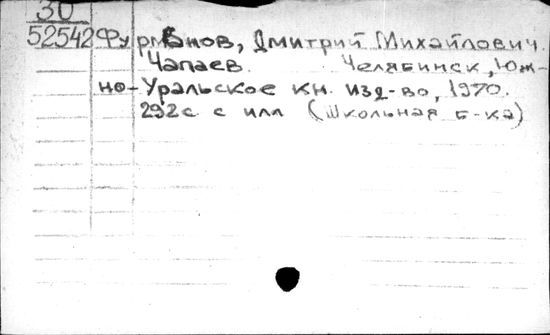 30
52542 Фурманов, Дмитрий Михайлович.
Чапаев. Челябинск, Юж-
но-Уральское кн. изд-во, 1970.
292с с илл (Школьная б-ка)